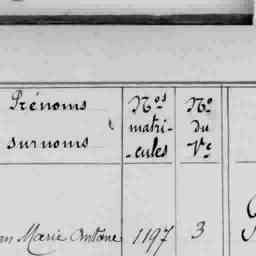 Prénoms
surnoms
Nos
matri-
-cules
No
du
Ve
Marie Antoine 1197 3